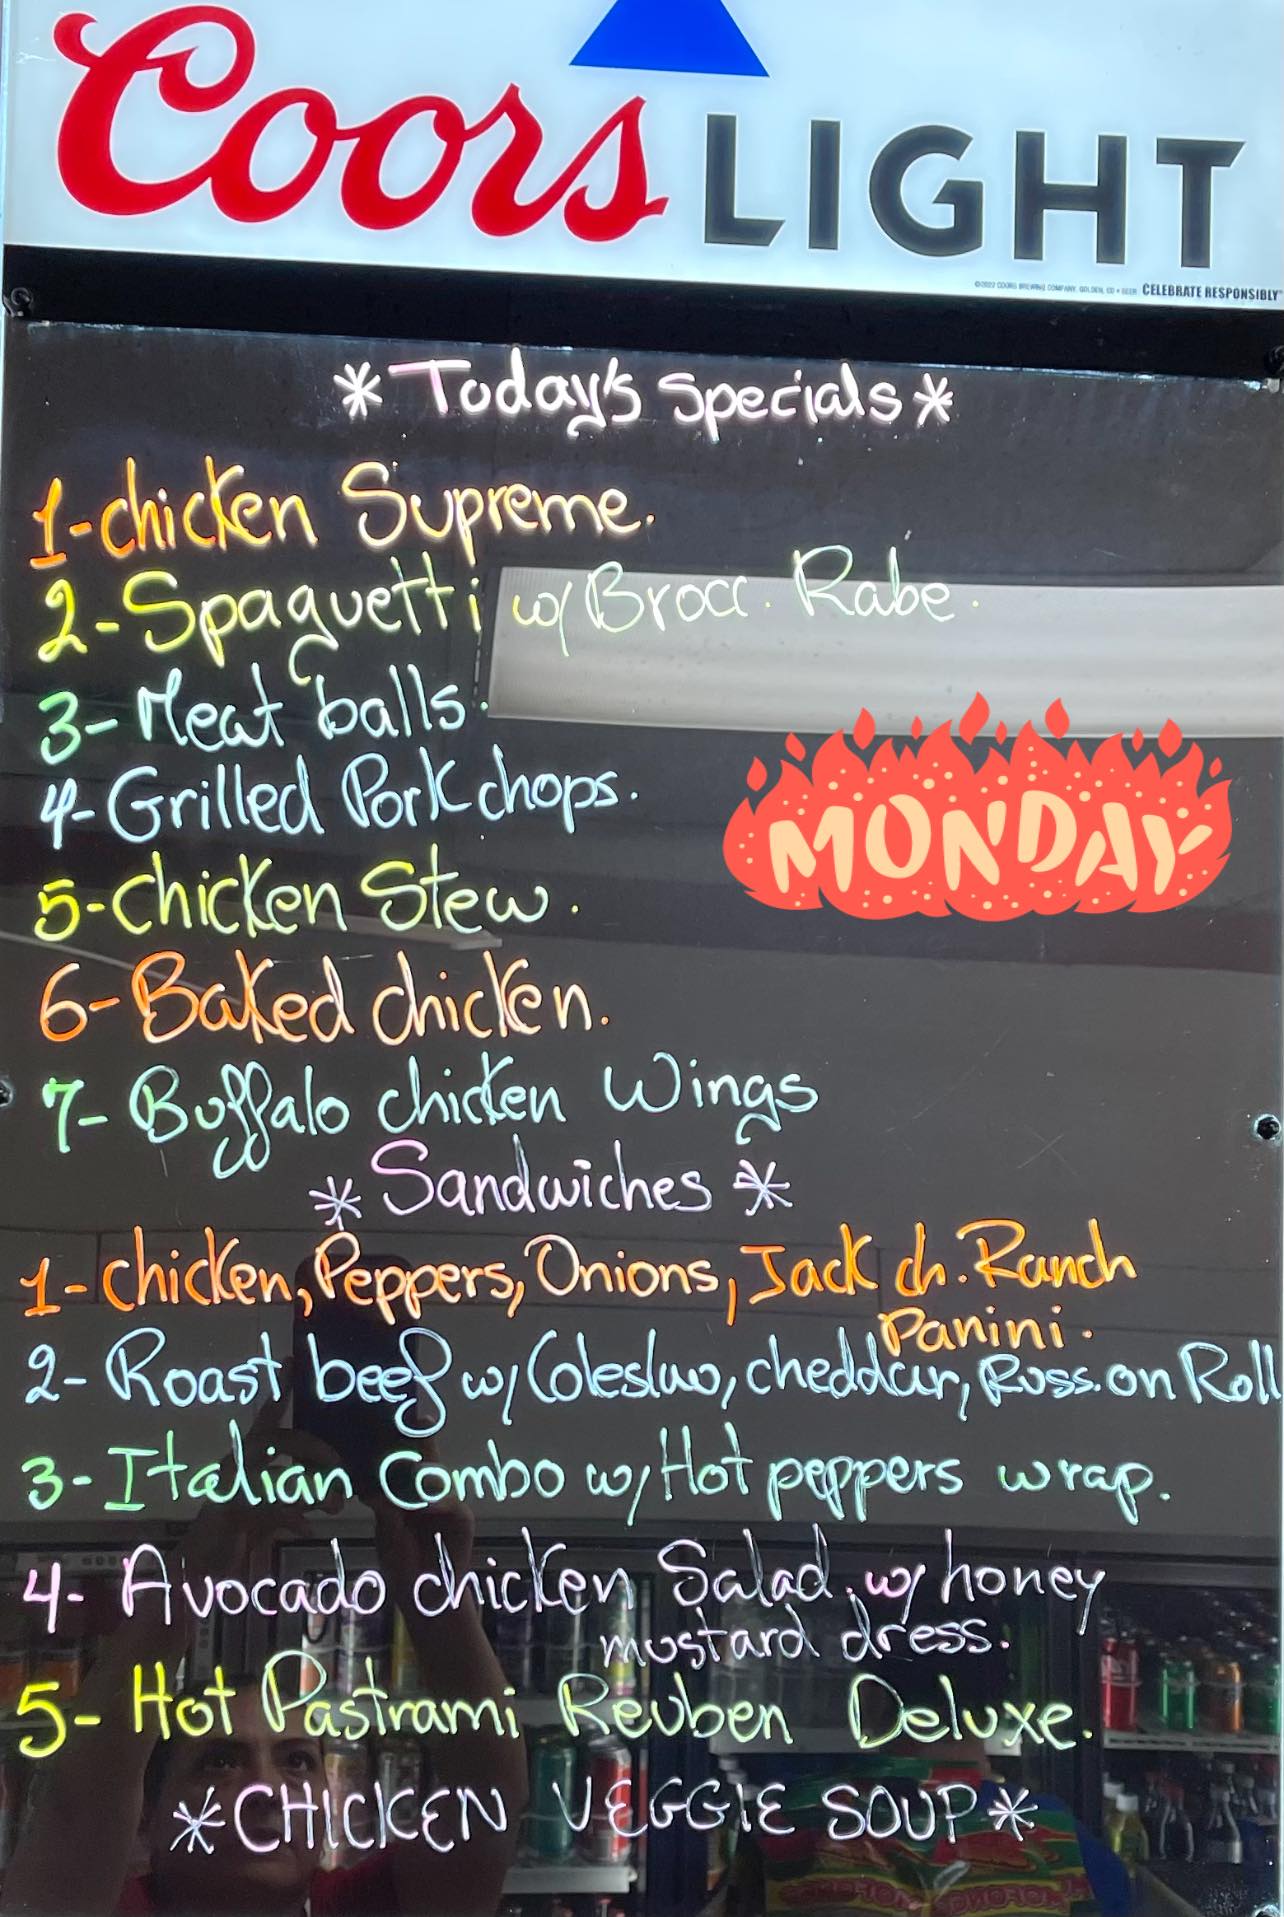 Coors LIGHT
©2022 COORS BREWING COMPANY, GOLDEN, CO • BEER CELEBRATE RESPONSIBLY
* Today's Specials *
1-chicken Supreme.
2-Spaguetti w/Brocc. Rabe.
3-Meat balls.
4-Grilled Pork chops.
MONDAY
5-chicken Stew.
6-Baked chicken.
7-Buffalo chicken Wings
* Sandwiches *
1-chicken, Peppers, Onions, Jack ch. Ranch
Panini.
2- Roast beef w/Coleslaw, cheddar, Russ. on Roll
3-Italian Combo w/Hot peppers wrap.
4- Avocado chicken Salad. w/ honey
mustard dress.
5- Hot Pastrami Reuben Deluxe.
*CHICKEN VEGGIE SOUP*